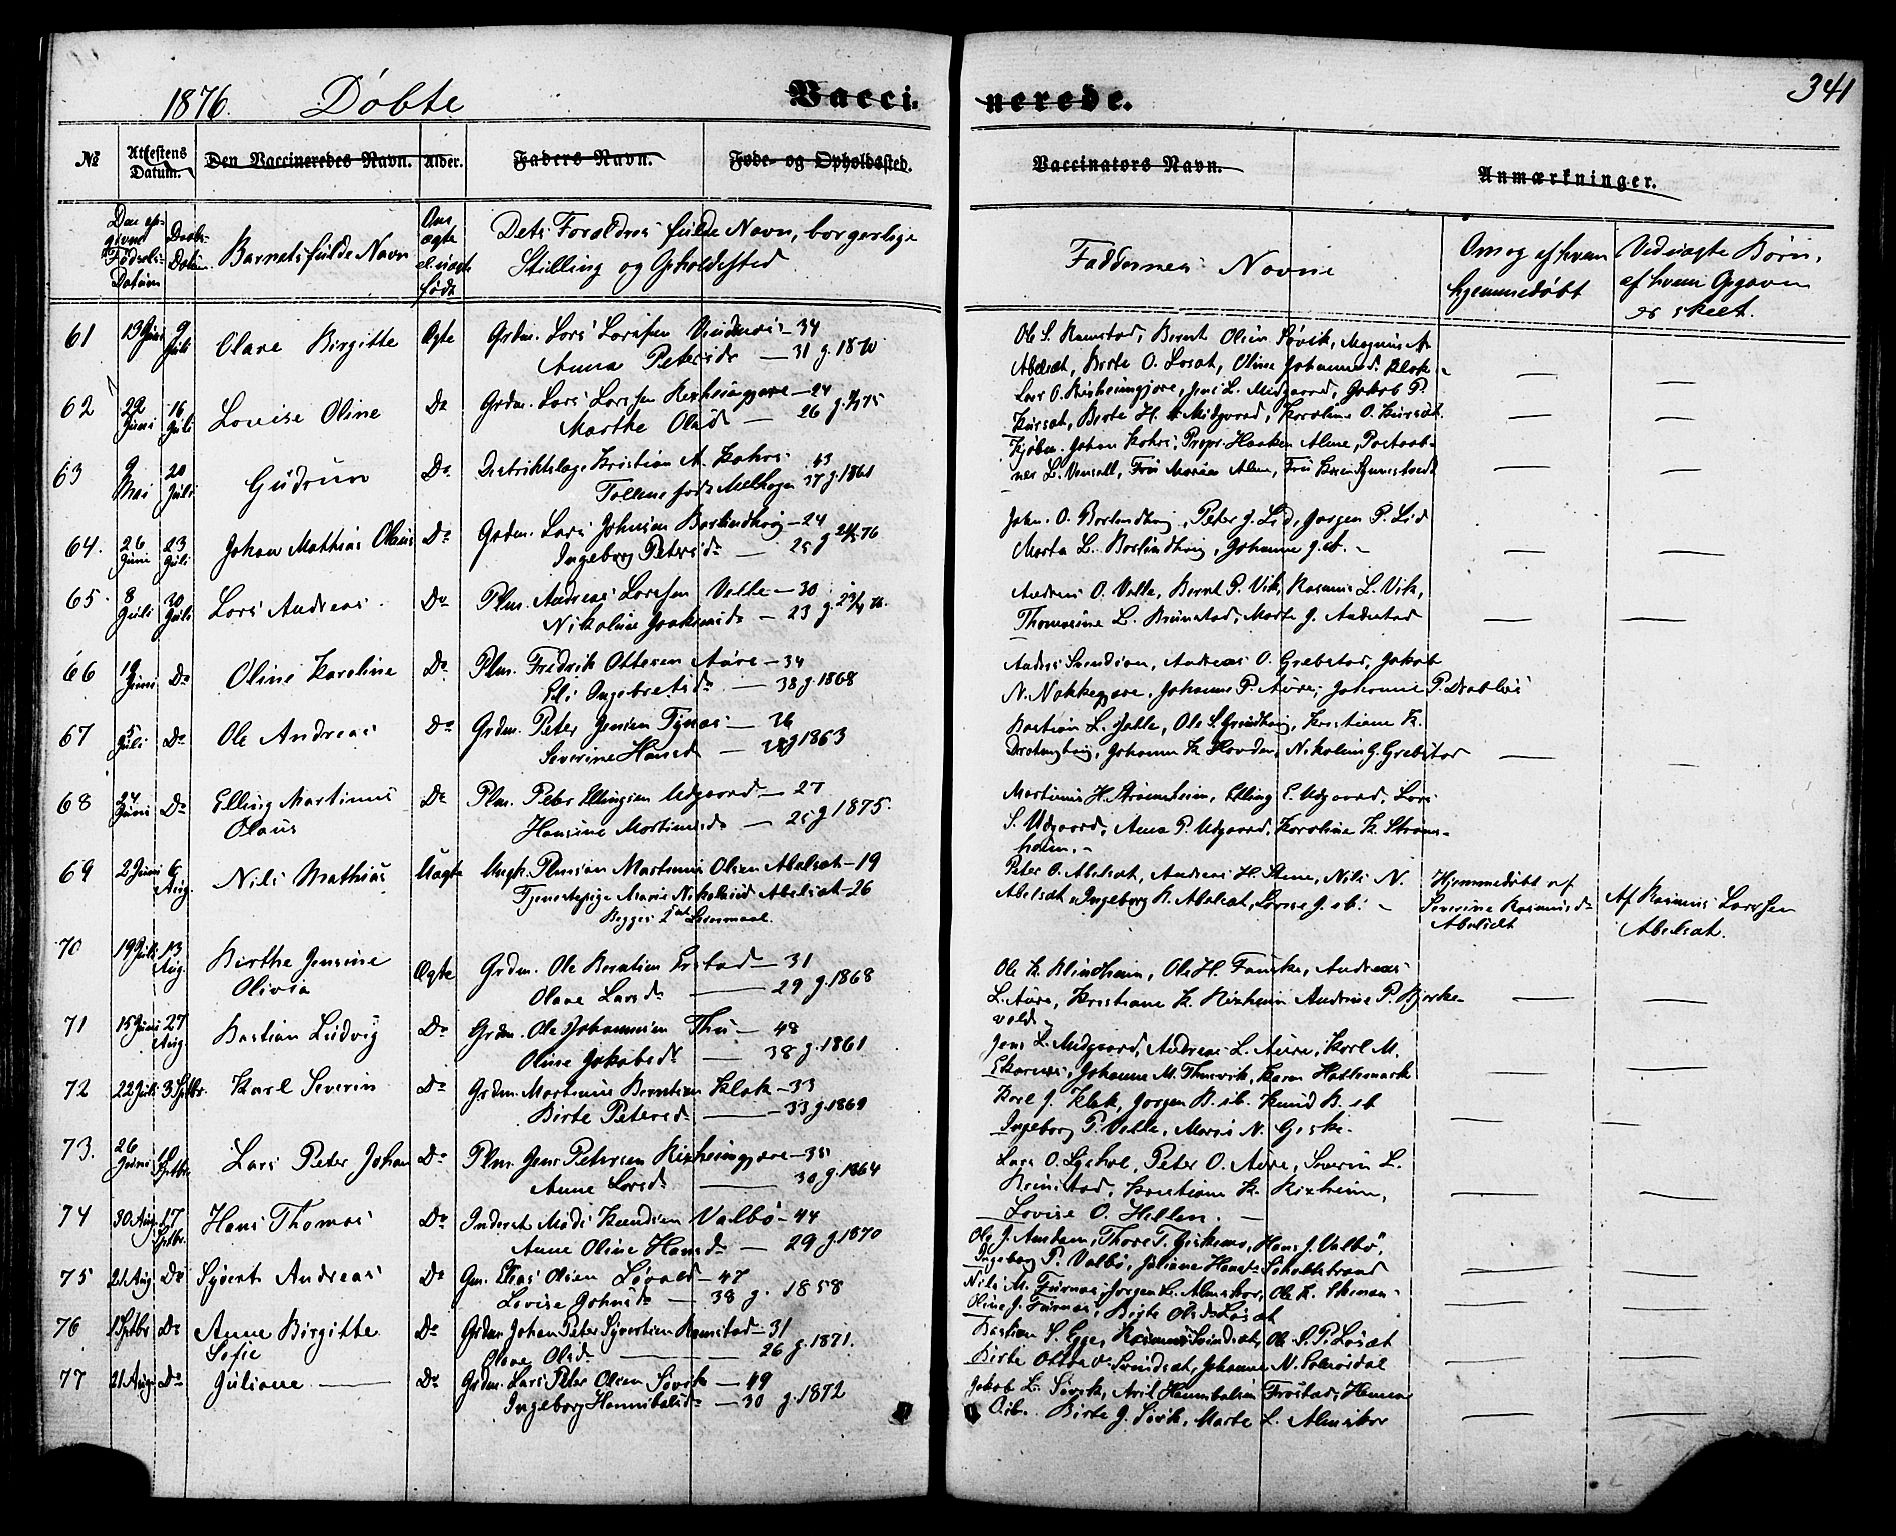 1876. Døbte Vaccinerede. 341
No Attestens Datum. Den Vaccineredes Navn. Alder. Faders Navn. Føde- og Opholdssted. Vaccinators Navn. Anmærkninger.
Den opgivne Fødsels Datum Daabs Datum Barnets fulde Navn Om ægte el. uægte født Dets Forældres fulde Navn, borgerlige Stilling og Opholdssted Faddernes Navne Om og af hvem hjemmedøbt Ved uægte Børn, af hvem Opgaven er skeet.
61 13 Juni 9 Juli Olave Birgitte Ægte Grdm. Lars Larssen Vindnes 34
Anna Petersd. 31 g. 1870
Ole S. Ramstad, Bernt Olsen Søvik, Magnus A.
Abelsæt, Birte O. Losæt, Oline Johannesd. Klok
62 22 Juni 16 Juli Lovise Oline Do Grdm. Lars Larssen Rexheimgjære 24
Marthe Olsd. 26 g. 75
Lars O. Rixheimgjære, Jens L. Midgaard, Jakob P.
Kursæt, Birte H. Midgaard, Karoline O. Kursæt.
63 9 Mai 20 Juli Gudrun Do Distriktslæge Kristian A. Kahrs 43
født Mellhagen 37 g. 1861
Kjøbm. Johan Kahrs, Propr. Haaken Alme, Postaabner L. Fru Marie Alme, Fru
64. 26 Juni 23 Juli Johan Mathias Olaus Do Grdm. Lars Johnsen Borlindhoug 24
Ingeborg Petersd. 25 g. 76
John O. Borlindhoug, Peter J. Lid, Jørgen P. Lid
Marta L. Borlindhoug, Johanne J. st.
65 8 Juli 30 Juli Lars Andreas Do Plm. Andreas Larssen Velle 30
Nikoline Joakimsd. 23 g.
Andreas O. Velle, Bernt P. Vik, Rasmus L. Vik,
Thomasine L. Brunstad, Marte J. Andestad
66 19 Juni Do Oline Karoline Do Plm. Fredrik Ottesen Aure 34
Eli Ingebretsd. 38 g. 1868
Anders Svendsen, Andreas O. Grebstad, Jakob
N. Nakkegjære, Johanne P. Aure, Johanne P. Drabløs
67 5 Juli Do Ole Andreas Do Grdm. Peter Jensen Tynes 36
Severine Hansd. g. 1863
Bastian L. Jælle, Ole S. Grindhoug, Kristiane K.
Drotninghoug, Johanne K. Hovden, Nikoline G. Grebstad
68 24 Juni Do Elling Martinus Olaus Do Plm. Peter Ellingsen Udgaard 27
Hansine Martinusd. 25 g. 1875.
Martinus H. Strømsheim, Elling E. Udgaard, Lars
S. Udgaard, Anna P. Udgaard, Karoline K. Strømsheim.
69 2 Juni 6 Aug. Nils Mathias Uægte Ungk. Plmssøn Martinus Olsen Abelsæt 19
Tjenestepige Marie Nikolaisd. Abelsæt 26
Begges 2det Leiermaal
Peter O. Abelsæt, Andreas H. Stene, Nils N.
Abelsæt, Ingeborg R. Abelsæt, Lovise J. st.
Hjemmedøbt af Severine Rasmusd. Abelsæt
Af Rasmus Larssen Abelsæt.
70 19 Juli 13 Aug. Birthe Jensine Olivia Ægte Grdm. Ole Berntsen Erstad 31
Olave Larsd. 29 g. 1868
Ole K. Blindheim, Ole H. Fauske, Andreas
L. Aure, Kristiane K. Rixheim Andrine P. Bjørkevold
71 15 Juni 27 Aug. Bastian Ludvig Do Grdm. Ole Johannesen Thu 48
Oline Jakobsd. 38 g. 1861
Jens L. Midgaard, Andreas L. Aure, Karl M.
Ekornes, Johanne M. Thusvik, Karen Hattlemark
72 22 Juli 3 Sptbr Karl Severin Do Grdm. Martinus Berntsen Klok 33
Birte Petersd. 33 g. 1869
Karl J. Klok, Jørgen B. st. Knud B. st
Ingeborg P. Velle, Maria N. Giske
73. 26 Juni 10 Sptbr Lars Peter Johan Do Plm. Jens Petersen Rixheimgjære 35
Anne Larsd. 30 g. 1864
Lars O. Lyshol, Peter O. Aure, Severin L.
Brunstad, Kristiane K. Rixheim,
Lovise O. Hellen.
74 30 Aug 17 Sptbr. Hans Thomas Do Inderst Mads Knudsen Valbø 44
Anne Oline Hansd. 29 g. 1870
Ole J. Amdam, Thore T. Giskemo, Hans J. Valbø,
Ingeborg P. Valbø, Juliane Hansd. Scholtestrand
75 21 Aug Do Syvert Andreas Do Gm. Elias Olsen Løvold 47
Lovise Johnsd. 38 g. 1858
Nils M. Furnes, Jørgen L. Almskor, Ole K.
Oline J. Furnes, Birte Olsd. Losæt
76 1 Sptbr Do Anne Birgitte Sofie Do Grdm Johan Peter Syvertsen Ramstad 31
Olave Olsd. 26 g. 1871.
Bastian S. Egge, Rasmus Svindsæt, Ole S. P. Losæt
Birte Ottesd. Svindsæt, Johanne N. Solnørdal
77 21 Aug Do Juliane Do Grdm. Lars Peter Olsen Søvik 49
Ingeborg Hannibalsd. 30 g. 1872
Jakob L. Søvik, Aril Hannibalsen Frøstad,
O. st. Birte J. Søvik, Marte L. Almskor